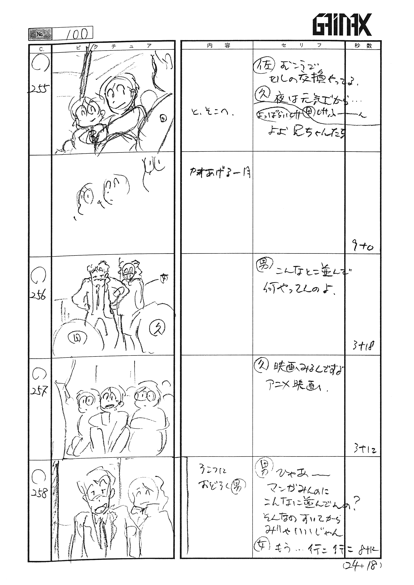 GAINAX
No. 100
C. ピクチュア 内容 セリフ 秒数
C
255
と、そこへ。
佐 むこうで
セルの交換やってる。
久 夜は元気だから…
よぉ 兄ちゃんたち
かおあげる一同
9+0
C
256
男 こんなとこ並んで
何やってんのよ。
3+18
C
257
久 映画みるんですよ
アニメ映画。
3+12
C
258
ろこつに
おどろく男
男 ひゃあー
マンガみんのに
こんなに並んでんの?
そんなの すいてから
みりゃいいじゃん
女 もう…行こ 行こ
8+12
(24+18)